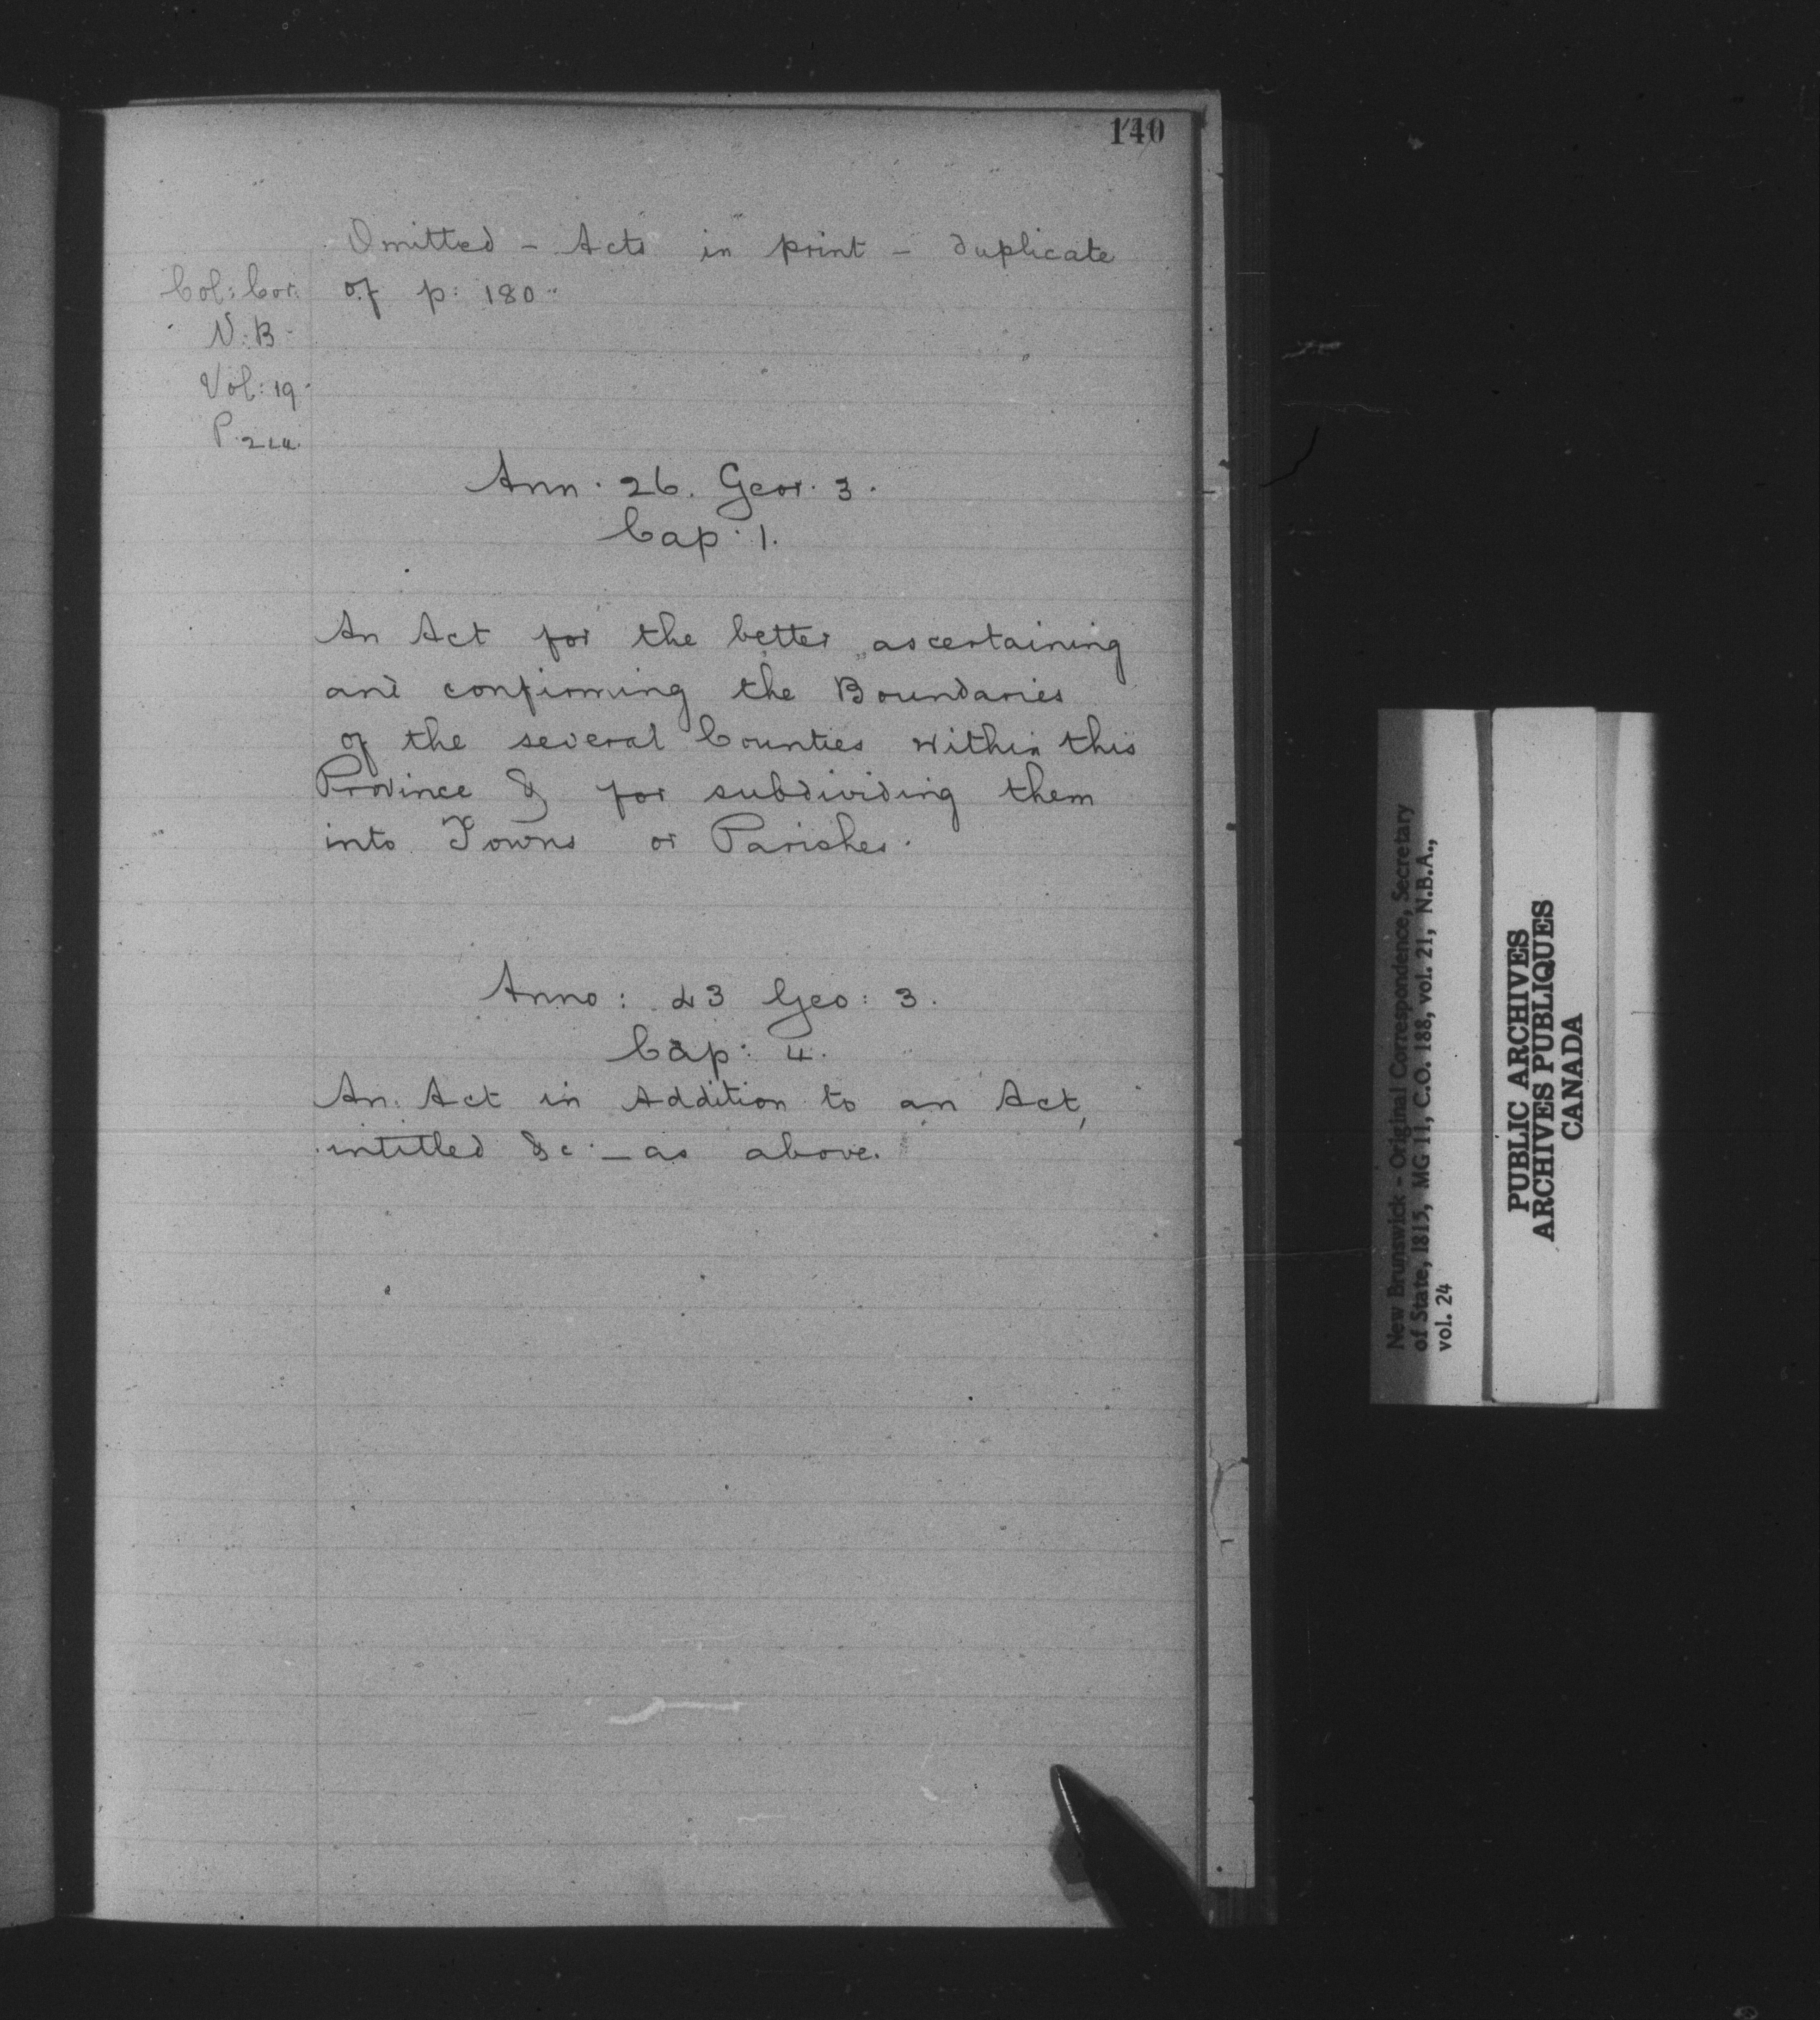 140
Omitted - Acts in print - duplicate
of p: 180
Col: Cor:
N: B
Vol: 19
P.
Ann. 26. Geor. 3.
Cap: 1.
An Act for the better ascertaining
and confirming the Boundaries
of the several Counties within this
Province & for subdividing them
into Towns or Parishes.
Anno: 43 Geo: 3.
Cap: 4.
An Act in Addition to an Act,
intitled &c - as above.
New Brunswick - Original Correspondence, Secretary
of State, 1815, MG 11, C.O. 188, vol. 21, N.B.A.,
vol. 24
PUBLIC ARCHIVES
ARCHIVES PUBLIQUES
CANADA